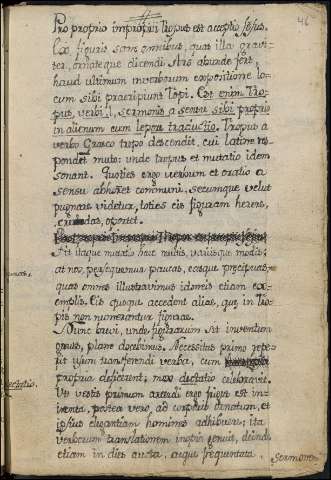 46
Pro proprio improprii Tropus est acceptio sensus.
Ex figuris sane omnibus, quas illa gravi-
ter, ornateque dicendi Ars abunde fert
haud ultimum in verborum expositione lo-
cum sibi praeripiunt Tropi. Est enim Tro-
pus, verbi, l. sermonis a sensu sibi proprio
in alienum cum lepore traductio. Tropus a
verbo Graeco trepo descendit, cui latine res-
pondet muto: unde tropus et mutatio idem
sonant. Quoties ergo verbum et oratio a
sensu abhoret communi, secumque velut
pugnare videtur, toties eis figuram herere,
credas, oportet.
Fit itaque mutatio haec multis, variisque modis:
at nos, persequemur paucas, easque praecipuas,
quas omnes illustravimus idoneis etiam ex-
emplis. Eis quoque accedent alias, quae in Tro-
pis non numerantur figurae.
Nunc brevi, unde figurarum sit inventum
genus, plane docebimus. Necessitas primo repe-
rit usum transferendi verba, cum
propria deficerent; mox delectatio celebravit.
Ut vestis primum arcendi ergo frigus est in-
venta, postea vero, ad corporis ornatum, et
ipsius elegantiam homines adhibuere; ita
verborum translationem inopia genuit, deinde
etiam in dies aucta, atque frequentata.
Sermonem